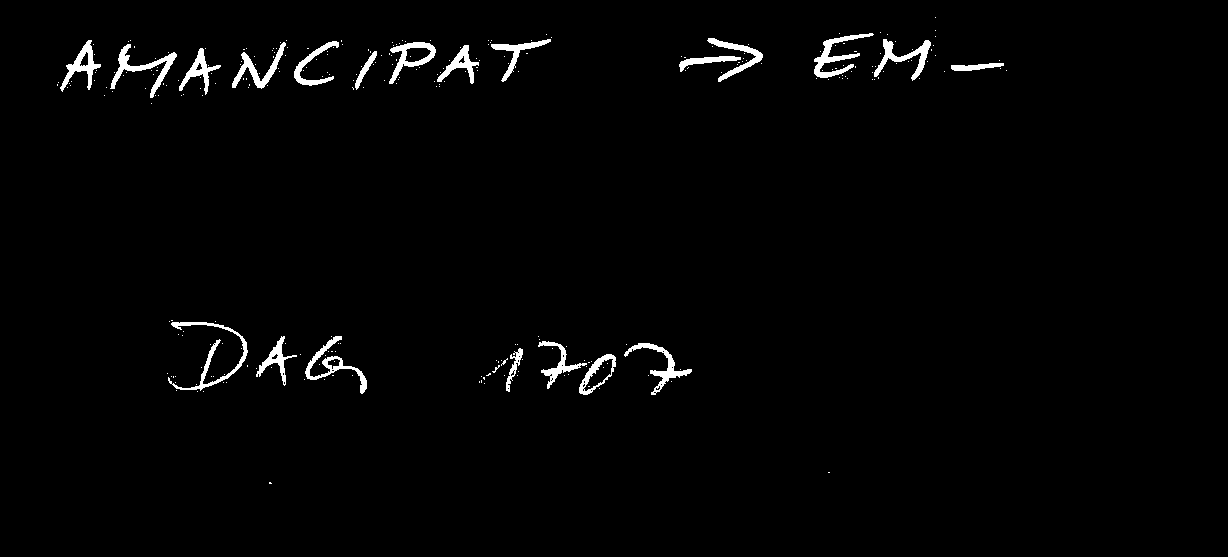 AMANCIPAT → EM-
DAG 1707